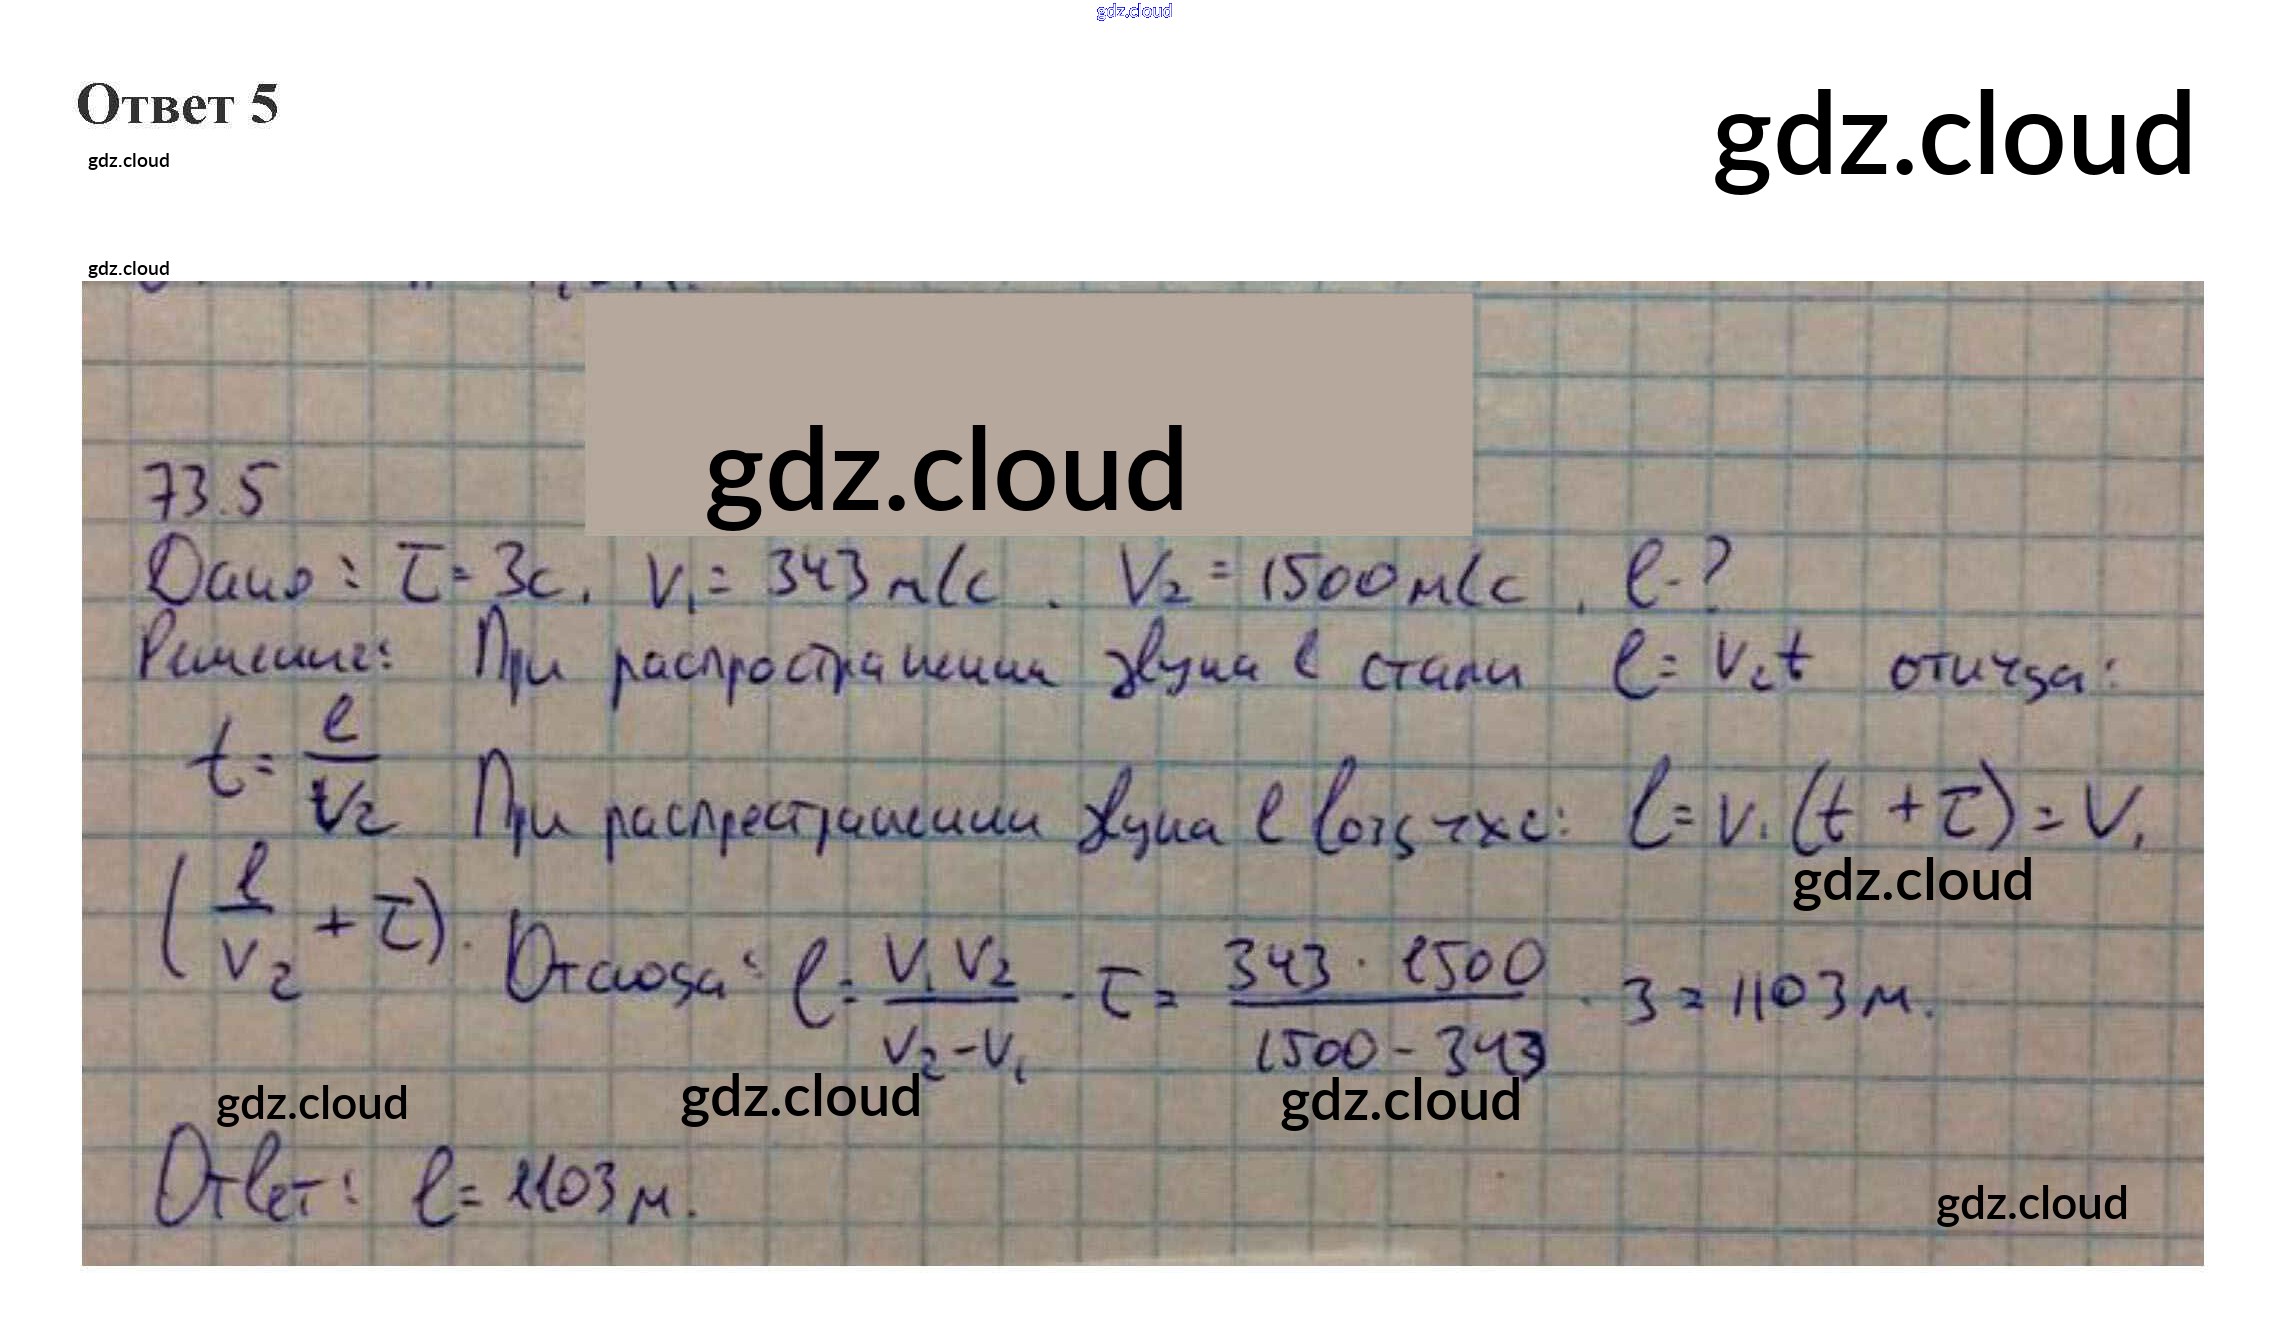 gdz.cloud
Ответ 5
gdz.cloud
gdz.cloud
gdz.cloud
gdz.cloud
73.5
Дано: τ = 3с. V₁ = 343 м/с. V₂ = 1500 м/с, l - ?
Решение: При распространении звука в стали l = V₂t откуда:
t = l/V₂ При распространении звука в воздухе: l = V₁(t + τ) = V₁
gdz.cloud
(l/V₂ + τ). Отсюда: l = V₁V₂/(V₂-V₁) · τ = 343 · 1500/(1500 - 343) · 3 = 1103 м.
gdz.cloud gdz.cloud gdz.cloud
Ответ: l = 1103 м.
gdz.cloud